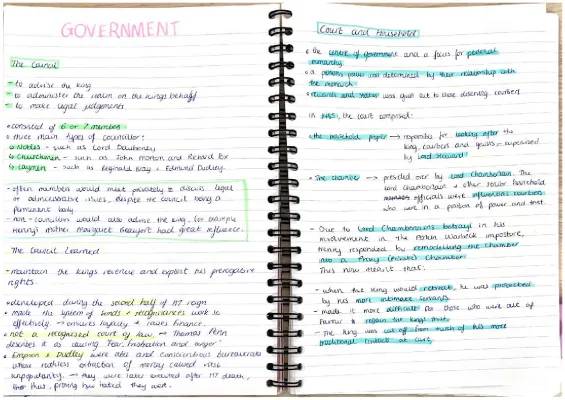 GOVERNMENT
The Council
- to advise the king
- to administer the realm on the kings behalf
- to make legal judgements
• consisted of 6 or 7 members
• three main types of councillor:
Nobles - such as Lord Daubeney
Churchmen - such as John Morton and Richard Fox
Laymen - such as Reginald Bray + Edmund Dudley.
- often members would meet privately to discuss legal
or administrative issues, despite the council being a
permanent body
- non-councillors would also advise the king, for example
Henry's mother Margaret Beaufort had great influence.
The Council Learned
- maintain the kings revenue and exploit his prerogative
rights.
• developed during the second half of H7 reign
• made the system of bonds + recognisances work so
effectively → ensures loyalty + raises finance.
• not a recognised court of law → Thomas Penn
describes it as causing 'fear, frustration and anger'
• Empson + Dudley were able and conscientious bureaucrats
whose ruthless extraction of money caused
unpopularity → they were later executed after H7 death,
thus, proving how hated they were.
Court and Household
• the centre of government and a focus for personal
monarchy
• a persons power was determined by their relationship with
the monarch
• rewards and status was given out to those deserving courtiers
in, the court composed:
• the household proper → responsible for looking after the
king, courtiers and guests - supervised
by Lord Steward
• The chamber → presided over by Lord Chamberlain. The
lord chamberlain + other senior household
officials were influential courtiers
who were in a position of power and trust.
- Due to Lord Chamberlains betrayal in his
involvement in the Perkin Warbeck imposture,
Henry responded by remodelling the chamber
into a Privy (private) Chamber
This now meant that:
- when the king would retreat, he was protected
by his more intimate servants
- made it more difficult for those who were out of
favour to regain the kings trust
- The king was cut off from much of his more
traditional contacts at court.